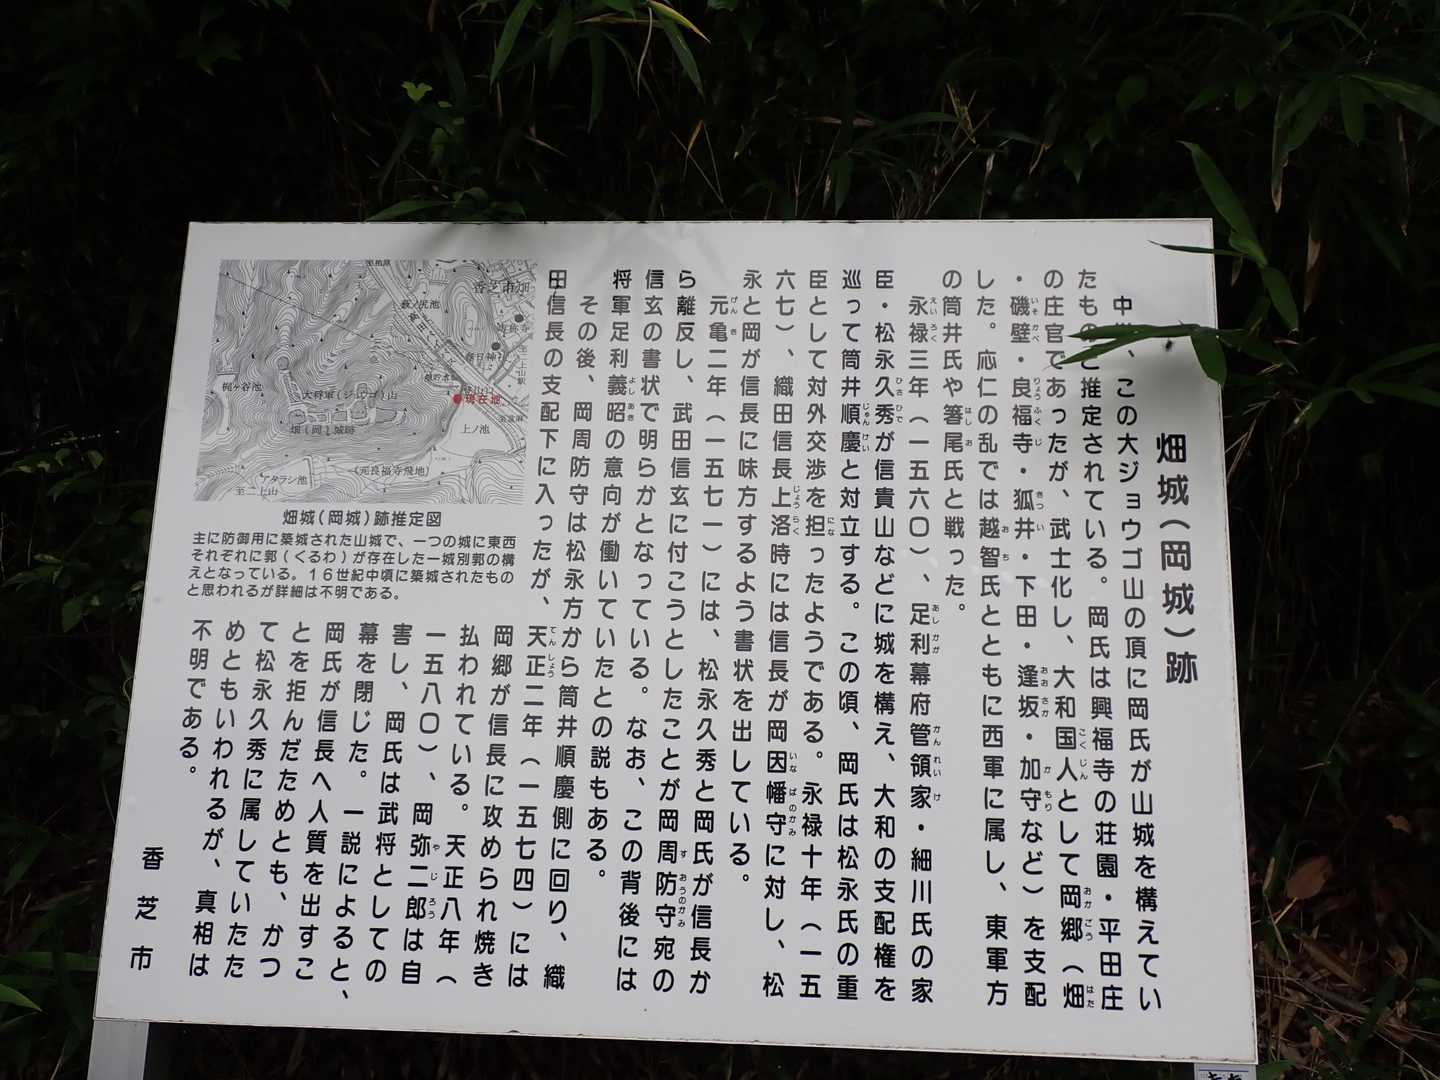 畑城(岡城)跡
中、この大ジョウゴ山の頂に岡氏が山城を構えてい
たもと推定されている。岡氏は興福寺の荘園・平田庄
の庄官であったが、武士化し、大和国人として岡郷(畑
・磯壁・良福寺・狐井・下田・逢坂・加守など)を支配
した。応仁の乱では越智氏とともに西軍に属し、東軍方
の筒井氏や箸尾氏と戦った。
永禄三年(一五六〇)、足利幕府管領家・細川氏の家
臣・松永久秀が信貴山などに城を構え、大和の支配権を
巡って筒井順慶と対立する。この頃、岡氏は松永氏の重
臣として対外交渉を担ったようである。永禄十年(一五
六七)、織田信長上洛時には信長が岡因幡守に対し、松
永と岡が信長に味方するよう書状を出している。
元亀二年(一五七一)には、松永久秀と岡氏が信長か
ら離反し、武田信玄に付こうとしたことが岡周防守宛の
信玄の書状で明らかとなっている。なお、この背後には
将軍足利義昭の意向が働いていたとの説もある。
その後、岡周防守は松永方から筒井順慶側に回り、織
田信長の支配下に入ったが、天正二年(一五七四)には
岡郷が信長に攻められ焼き
払われている。天正八年(
一五八〇)、岡弥二郎は自
害し、岡氏は武将としての
幕を閉じた。一説によると、
岡氏が信長へ人質を出すこ
とを拒んだためとも、かつ
て松永久秀に属していたた
めともいわれるが、真相は
不明である。
香芝市
香芝市畑
春日神社
梶ヶ谷池
大将軍(ジョウゴ)山
現在地
畑(岡)城跡
上ノ池
(元良福寺飛地)
アタラシ池
至二上山
畑城(岡城)跡推定図
主に防御用に築城された山城で、一つの城に東西
それぞれに郭(くるわ)が存在した一城別郭の構
えとなっている。16世紀中頃に築城されたもの
と思われるが詳細は不明である。